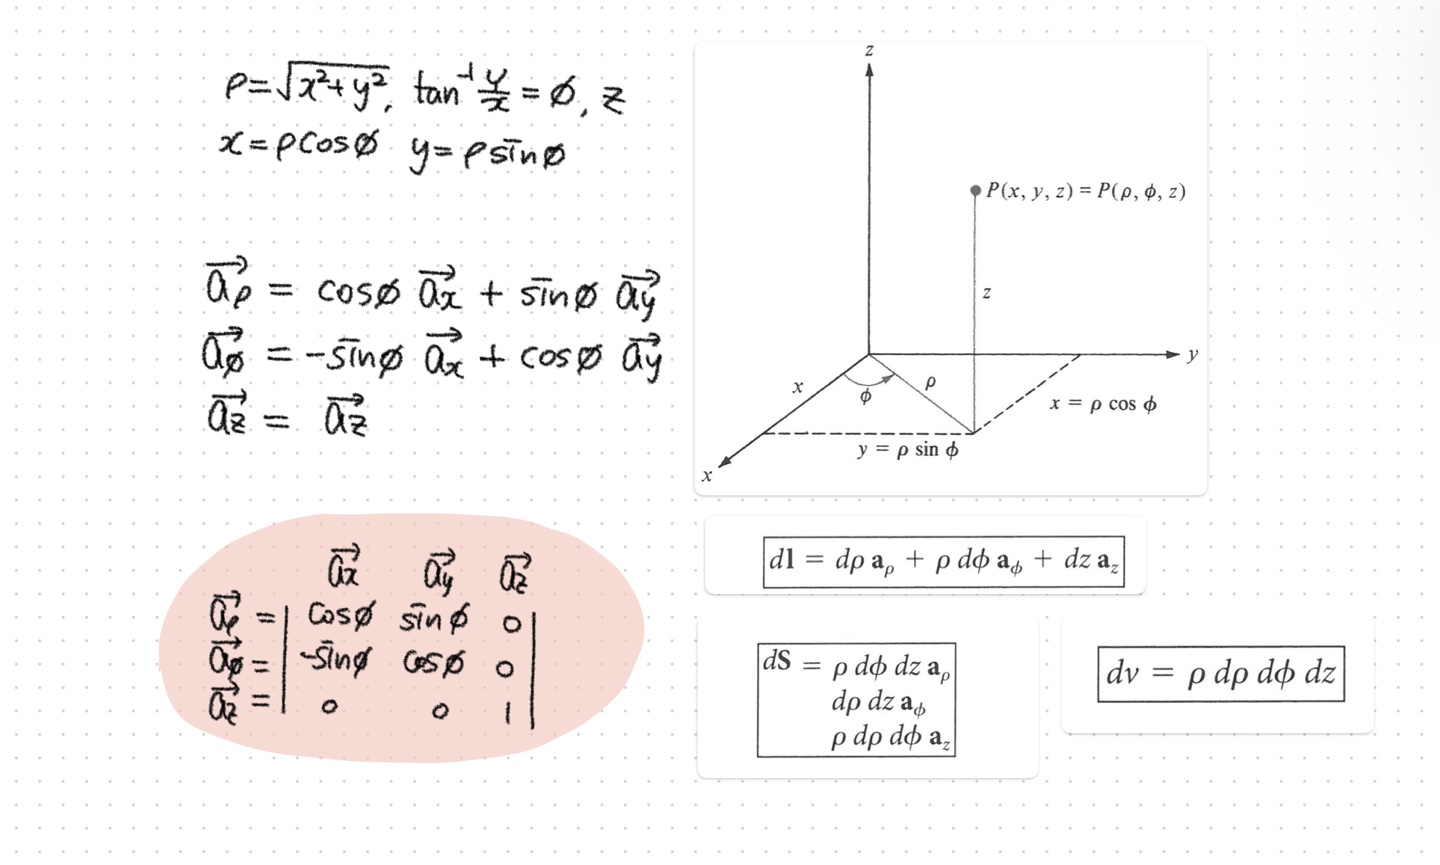 ρ=√x²+y², tan⁻¹ y/x = ϕ, z
x=ρcosϕ y=ρsinϕ
a⃗ρ = cosϕ a⃗x + sinϕ a⃗y
a⃗ϕ = -sinϕ a⃗x + cosϕ a⃗y
a⃗z = a⃗z
a⃗x a⃗y a⃗z
a⃗ρ = | cosϕ sinϕ 0 |
a⃗ϕ = | -sinϕ cosϕ 0 |
a⃗z = | 0 0 1 |
z
P(x, y, z) = P(ρ, ϕ, z)
z
y
x
ρ
ϕ
x = ρ cos ϕ
y = ρ sin ϕ
x
dl = dρ aρ + ρ dϕ aϕ + dz az
dS = ρ dϕ dz aρ
dρ dz aϕ
ρ dρ dϕ az
dv = ρ dρ dϕ dz